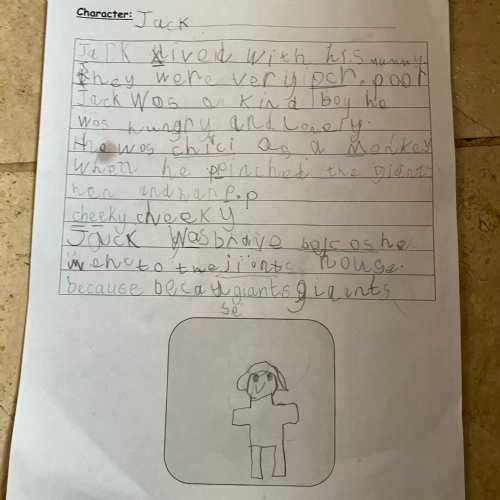 Character: Jack
Jack lived with his mummy.
they were very por. poor
Jack was a kind boy he
was hungry and lonely.
He was chici as a monkey
when he pinched the giants
hen and harp.p
cheeky cheeky
Jack was braive becos he
went to the jiants house.
because because giants giaints